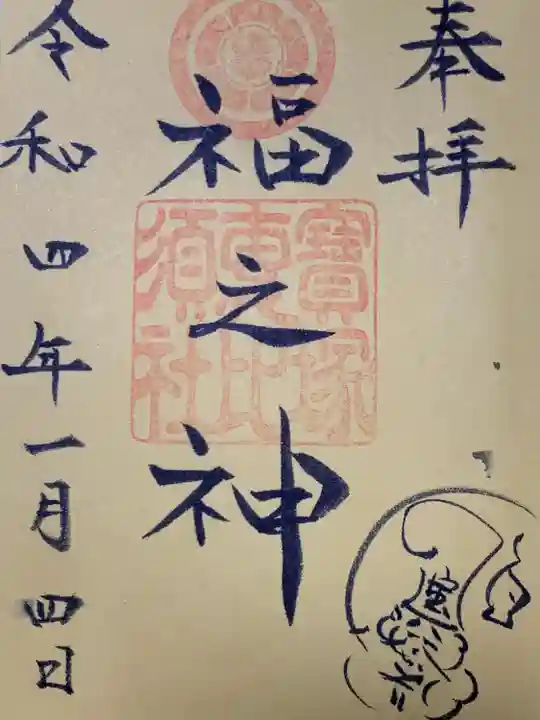 奉拝
福之神
寶塚
恵比
須社
令和四年一月四日